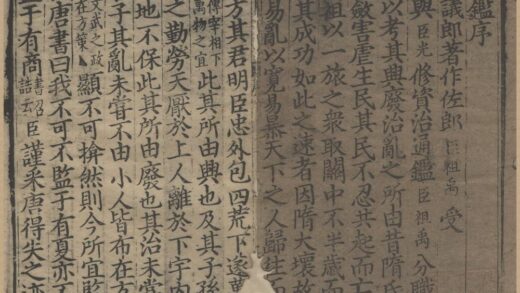 鑑序
議郎著作佐郎臣祖禹 受
與臣光修資治通鑑臣祖禹分職
以考其興廢治亂之所由昔隋氏
斂害虐生民其民不忍共起而亡
祖以一旅之衆取關中不半歲而
其成功如此之速者因隋大壞故
易亂以寬易暴天下之人歸
方其君明臣忠外包四荒下遂
傳宰相下萬物之宜此其所由興也及其子孫
之勤勞天厭於上人離於下宇内
地不保此其所由廢也其治未嘗
子其亂未嘗不由小人皆布在方
文武之政在方策顯不可揜然則今所宜監
唐書曰我不可不監于有夏亦
于有商書召誥云臣謹采唐得失之迹